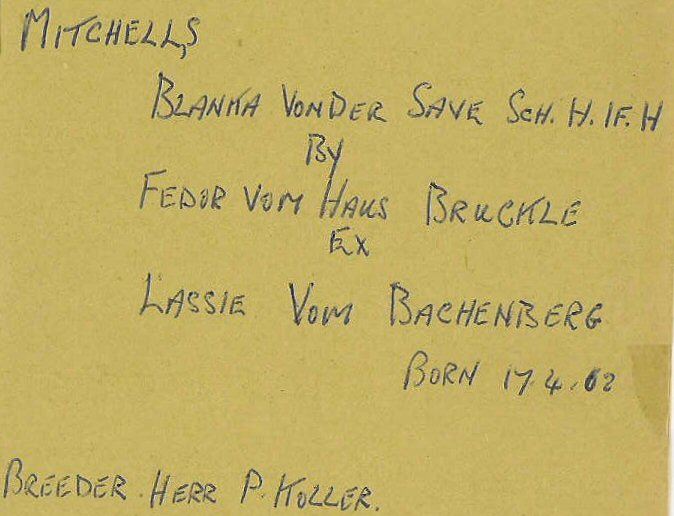 MITCHELL,S
BLANKA VONDER SAVE SCH. H. IF. H
BY
FEDOR VOM HAUS BRUCKLE
EX
LASSIE VOM BACHENBERG
BORN 17.4.62
BREEDER. HERR P. KOLLER.